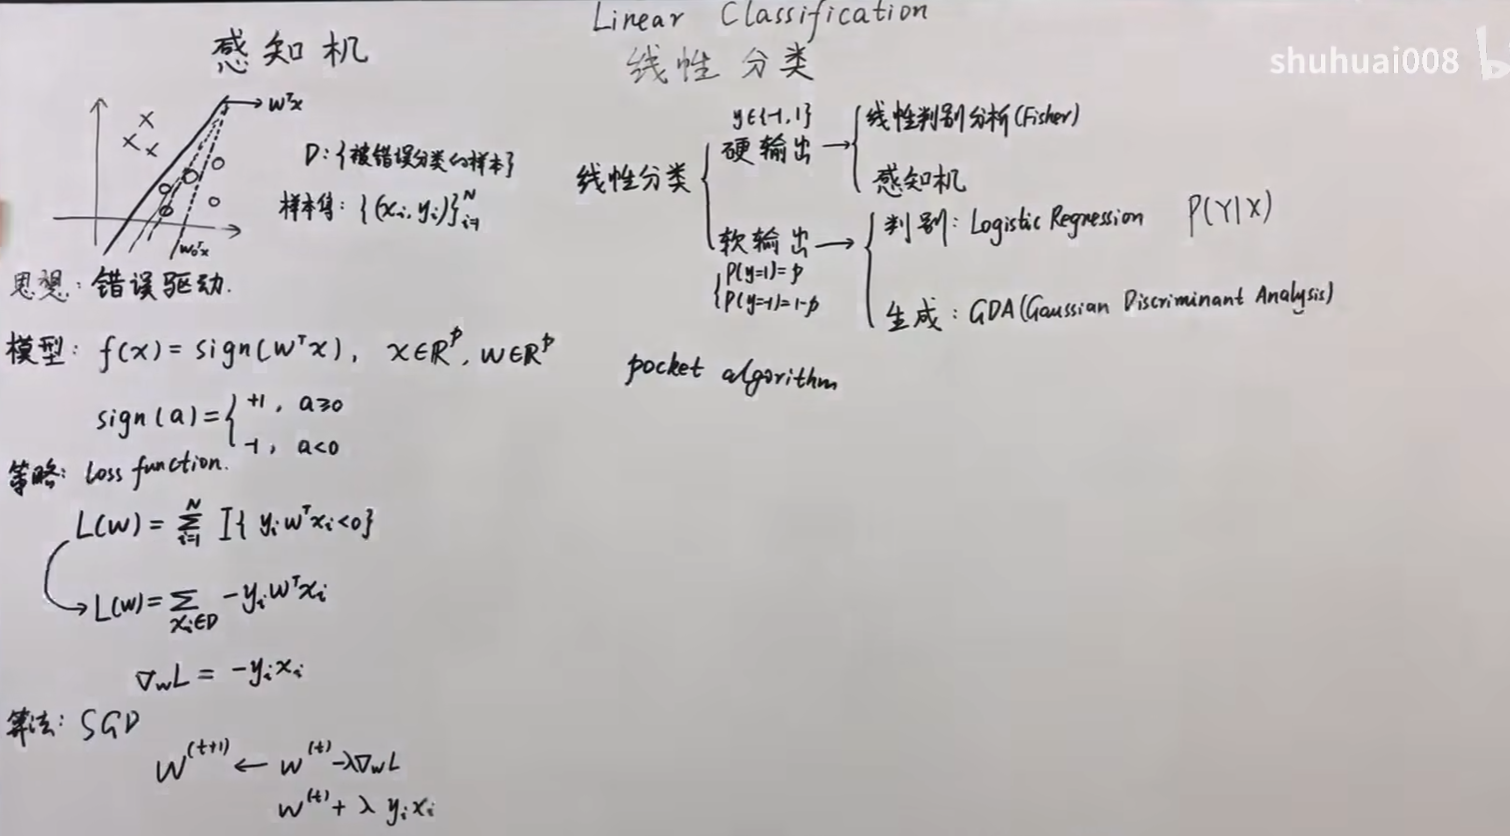 Linear Classification
线性分类
shuhuai008
感知机
wᵀx
D:{被错误分类的样本}
样本集: {(xᵢ, yᵢ)}ᵢ₌₁ᴺ
w₀ᵀx
思想: 错误驱动.
模型: f(x) = sign(wᵀx), x∈ℝᵖ, w∈ℝᵖ
sign(a) = { +1, a≥0
-1, a<0
策略: loss function.
L(w) = ∑ᵢ₌₁ᴺ I{yᵢwᵀxᵢ<0}
L(w) = ∑_{xᵢ∈D} -yᵢwᵀxᵢ
∇_w L = -yᵢxᵢ
算法: SGD
w⁽ᵗ⁺¹⁾ ← w⁽ᵗ⁾ - λ∇_w L
w⁽ᵗ⁾ + λ yᵢxᵢ
线性分类
y∈{-1, 1}
硬输出 →
线性判别分析(Fisher)
感知机
软输出 →
P(y=1)=p
P(y=-1)=1-p
判别: Logistic Regression P(Y|X)
生成: GDA(Gaussian Discriminant Analysis)
pocket algorithm